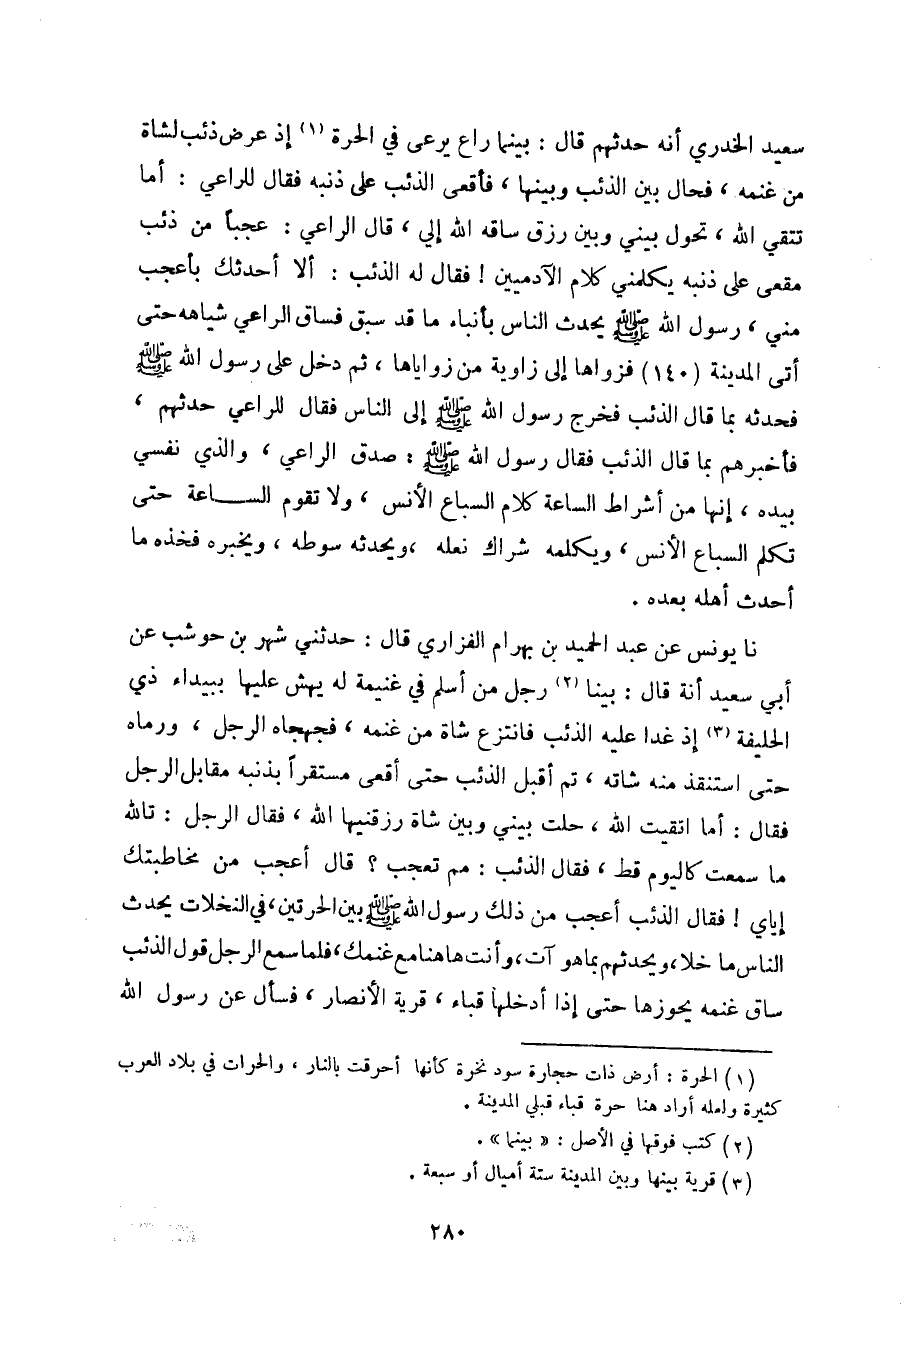 سعيد الخدري أنه حدثهم قال : بينما راع يرعى في الحرة (١) إذ عرض ذئب لشاة
من غنمه ، فحال بين الذئب وبينها ، فأقعى الذئب على ذنبه فقال للراعي : أما
تتقي الله ، تحول بيني وبين رزق ساقه الله إلي ، قال الراعي : عجباً من ذئب
مقعى على ذنبه يكلمني كلام الآدميين ! فقال له الذئب : ألا أحدثك بأعجب
مني ، رسول الله ﷺ يحدث الناس بأنباء ما قد سبق فساق الراعي شياهه حتى
أتى المدينة (١٤٠) فزواها إلى زاوية من زواياها ، ثم دخل على رسول الله ﷺ
فحدثه بما قال الذئب فخرج رسول الله ﷺ إلى الناس فقال للراعي حدثهم ،
فأخبرهم بما قال الذئب فقال رسول الله ﷺ : صدق الراعي ، والذي نفسي
بيده ، إنها من أشراط الساعة كلام السباع الأنس ، ولا تقوم الساعة حتى
تكلم السباع الأنس ، ويكلمه شراك نعله ،ويحدثه سوطه ، ويخبره فخذه ما
أحدث أهله بعده .
نا يونس عن عبد الحميد بن بهرام الفزاري قال : حدثني شهر بن حوشب عن
أبي سعيد أنة قال : بينا (٢) رجل من أسلم في غنيمة له يهش عليها ببيداء ذي
الحليفة (٣) إذ غدا عليه الذئب فانتزع شاة من غنمه ، فجهجاه الرجل ، ورماه
حتى استنقذ منه شاته ، تم أقبل الذئب حتى أقعى مستقراً بذنبه مقابل الرجل
فقال : أما اتقيت الله ، حلت بيني وبين شاة رزقنيها الله ، فقال الرجل : تالله
ما سمعت كاليوم قط ، فقال الذئب : مم تعجب ؟ قال أعجب من مخاطبتك
إياي ! فقال الذئب أعجب من ذلك رسول الله ﷺ بين الحرتين ، في النخلات يحدث
الناس ما خلا ، ويحدثهم بما هو آت ، وأنت هاهنا مع غنمك ، فلما سمع الرجل قول الذئب
ساق غنمه يحوزها حتى إذا أدخلها قباء ، قرية الأنصار ، فسأل عن رسول الله
(١) الحرة : أرض ذات حجارة سود نخرة كأنها أحرقت بالنار ، والحرات في بلاد العرب
كثيرة ولعله أراد هنا حرة قباء قبلي المدينة .
(٢) كتب فوقها في الأصل : « بينما » .
(٣) قرية بينها وبين المدينة ستة أميال أو سبعة .
٢٨٠